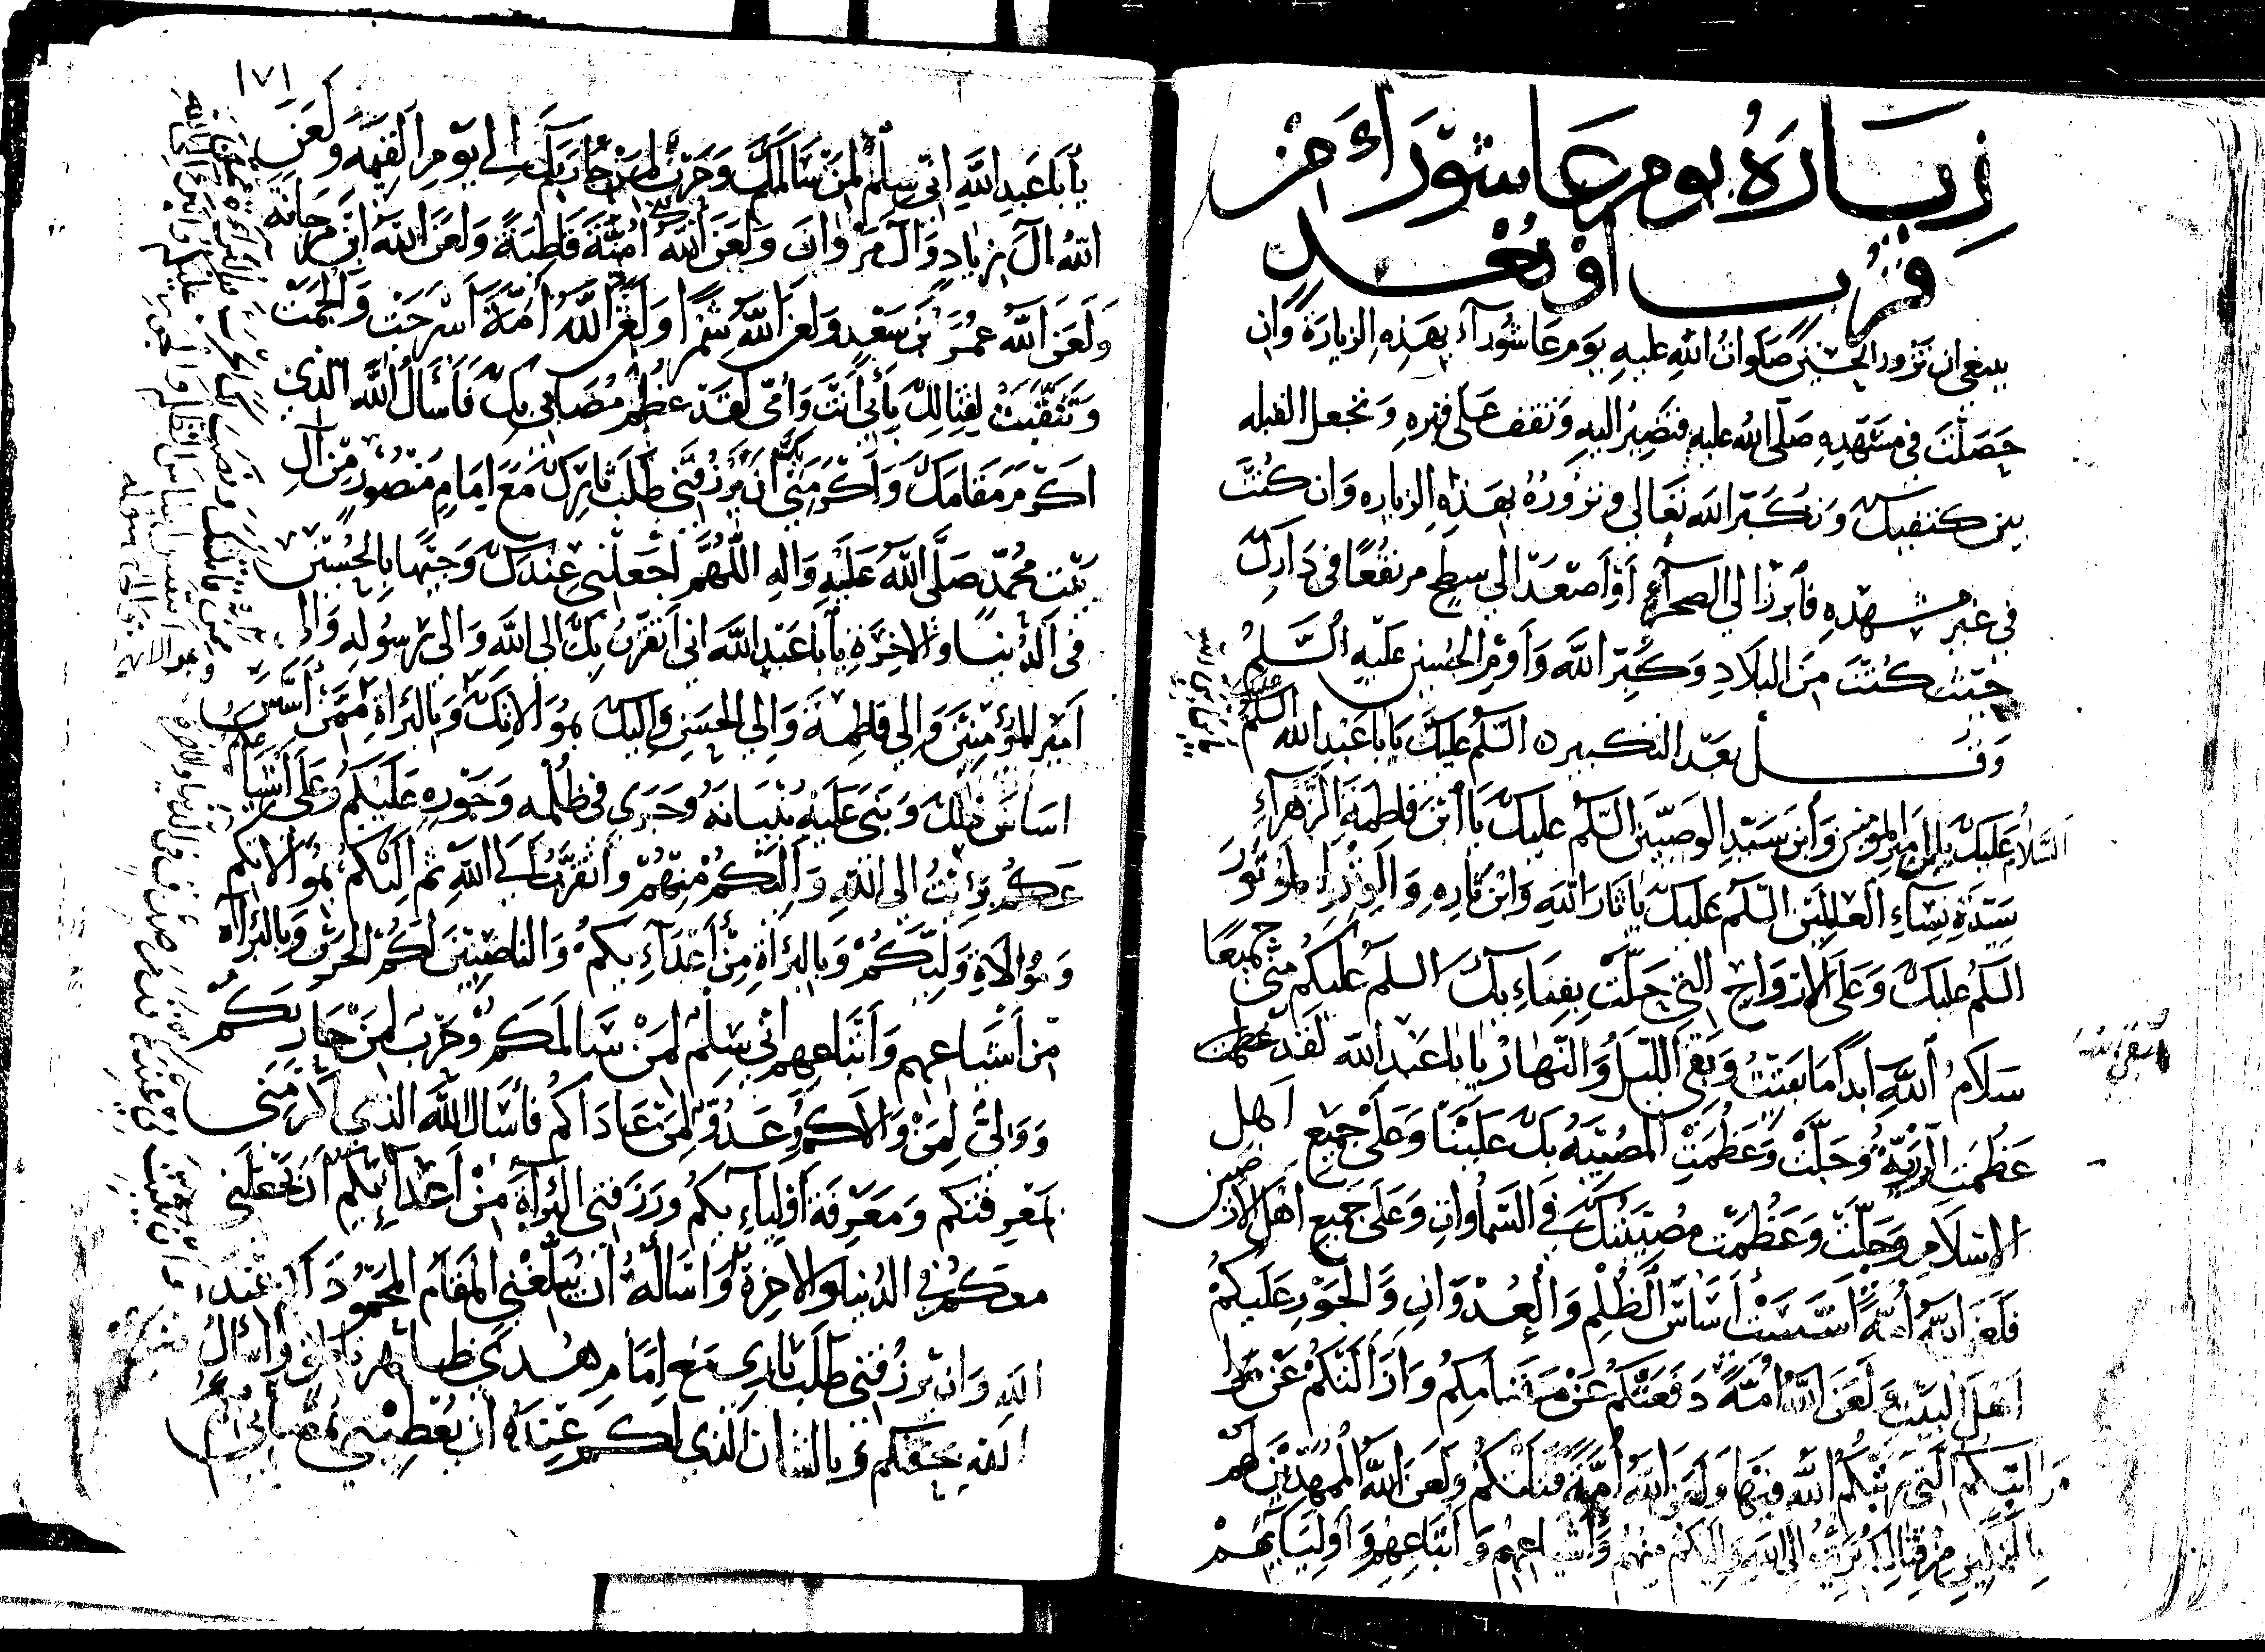 زيارة يوم عاشوراء من
قرب أو بعد
ينبغي ان تزور الحسين صلوات الله عليه يوم عاشوراء بهذه الزيارة وان
حصلت في مشهده صلى الله عليه فتصير اليه وتقف على قبره وتجعل القبله
بين كتفيك وتكبر الله تعالى وتزوره بهذه الزياره وان كنت
في غير مشهده فابرز الى الصحراء أو اصعد الى سطح مرتفعا في دارك
حيث كنت من البلاد وكبر الله وأوم الى الحسين عليه السلم
وقل بعد التكبيره السلم عليك يا با عبد الله السلم
السلام عليك يابن امير المومنين وابن سيد الوصيين السلم عليك يا ابن فاطمة الزهراء
سيدة نساء العلمين السلم عليك يا ثار الله وابن ثاره والوتر الموتور
السلم عليك وعلى الارواح التي حلت بفنائك السلم عليكم مني جميعا
سلام الله ابدا ما بقيت وبقي الليل والنهار يا با عبد الله لقد عظمت
عظمت الرزية وجلت وعظمت المصيبة بك علينا وعلى جميع اهل
الاسلام وجلت وعظمت مصيبتك في السماوات وعلى جميع اهل الارضين
فلعن الله أمة أسست أساس الظلم والعدوان والجور عليكم
اهل البيت ولعن الله أمة دفعتكم عن مقامكم وازالتكم عن
مراتبكم التي رتبكم الله فيها ولعن الله أمة قتلتكم ولعن الله الممهدين لهم
بالتمكين من قتالكم برئت الى الله واليكم منهم وأشياعهم وأتباعهم وأوليائهم
١٧١
يا با عبد الله اني سلم لمن سالمك وحرب لمن حاربك الى يوم القيمة ولعن
الله آل زياد وآل مروان ولعن الله بني أمية قاطبة ولعن الله ابن مرجانة
ولعن الله عمر بن سعد ولعن الله شمرا ولعن الله أمة أسرجت وألجمت
وتنقبت لقتالك بأبي أنت وأمي لقد عظم مصابي بك فأسأل الله الذي
اكرم مقامك وأكرمني بك أن يرزقني طلب ثارك مع إمام منصور من آل
بيت محمد صلى الله عليه واله اللهم اجعلني عندك وجيها بالحسين
في الدنيا والاخرة يا با عبد الله اني أتقرب بك الى الله والى رسوله والى
أمير المؤمنين والى فاطمة والى الحسن واليك بموالاتك وبالبراءة ممن أسس
اساس ذلك وبنى عليه بنيانه وجرى في ظلمه وجوره عليكم وعلى أشيا
عكم برئت الى الله واليكم منهم وأتقرب الى الله ثم اليكم بموالاتكم
وموالاة وليكم وبالبراءة من أعدائكم والناصبين لكم الحرب وبالبراءة
من أشياعهم وأتباعهم اني سلم لمن سالمكم وحرب لمن حاربكم
وولي لمن والاكم وعدو لمن عاداكم فأسأل الله الذي اكرمني
بمعرفتكم ومعرفة أوليائكم ورزقني البراءة من أعدائكم أن يجعلني
معكم في الدنيا والاخرة وأسأله أن يبلغني المقام المحمود لكم عند
الله وان يرزقني طلب ثاري مع إمام هدى ظاهر ناطق وأسأل
الله بحقكم وبالشان الذي لكم عنده أن يعطيني بمصابي بكم